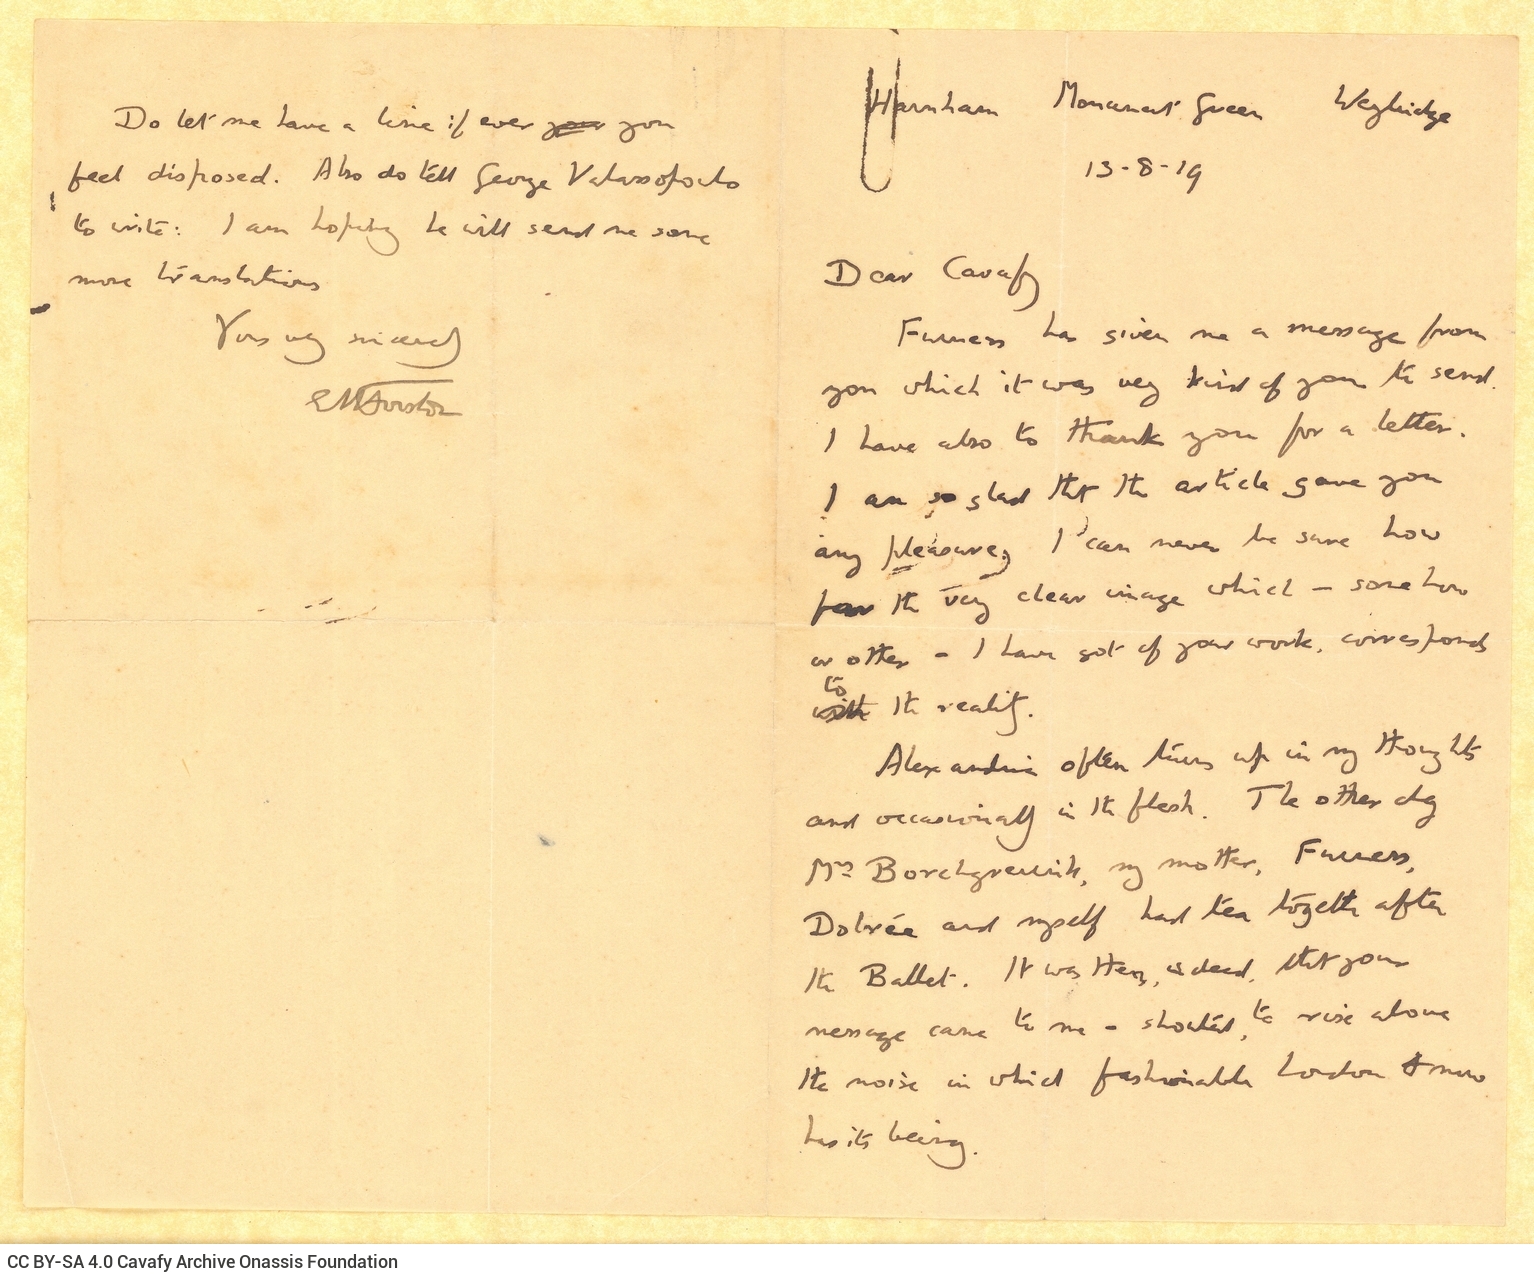 Harnham Monument Green Weybridge
13-8-19
Dear Cavafy
Furness has given me a message from
you which it was very kind of you to send.
I have also to thank you for a letter.
I am so glad that the article gave you
any pleasure; I can never be sure how
far the very clear image which – somehow
or other – I have got of your work, corresponds
to
with the reality.
Alexandria often turns up in my thoughts
and occasionally in the flesh. The other day
Mrs Borchgrevink, my mother, Furness,
Dobrée and myself had tea together after
the Ballet. It was then, indeed, that your
message came to me – shouted, to rise above
the noise in which fashionable London now
has its being.
Do let me have a line if ever your you
feel disposed. Also do tell George Valassopoulo
to write: I am hoping he will send me some
more translations
Yours very sincerely
EMForster
CC BY-SA 4.0 Cavafy Archive Onassis Foundation